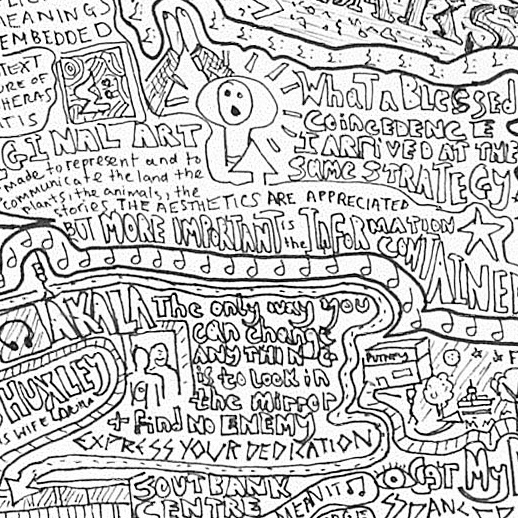 MEANINGS
EMBEDDED
TEXT
URE OF
HERAS
AT IS
WhaT A BLeSSed
CoiNCEDENCE
I ARRIVED AT THE
SAME STRATEGY
GINAL ART
made to represent and to
communicate the land the
plants, the animals, the
stories, THE AESTHETICS ARE APPRECIATED
BUT MORE IMPORTANT is the INFORMATION
CONTAINED
AKALA
The only way you
can change
ANYTHING
is to look in
the mirror
+ find NO ENEMY
EXPRESS YOUR DEDICATION
HUXLEY
IS WIFE LAURA
PUTNEY
SOUTBANK
CENTRE
MEANIT
CAT My